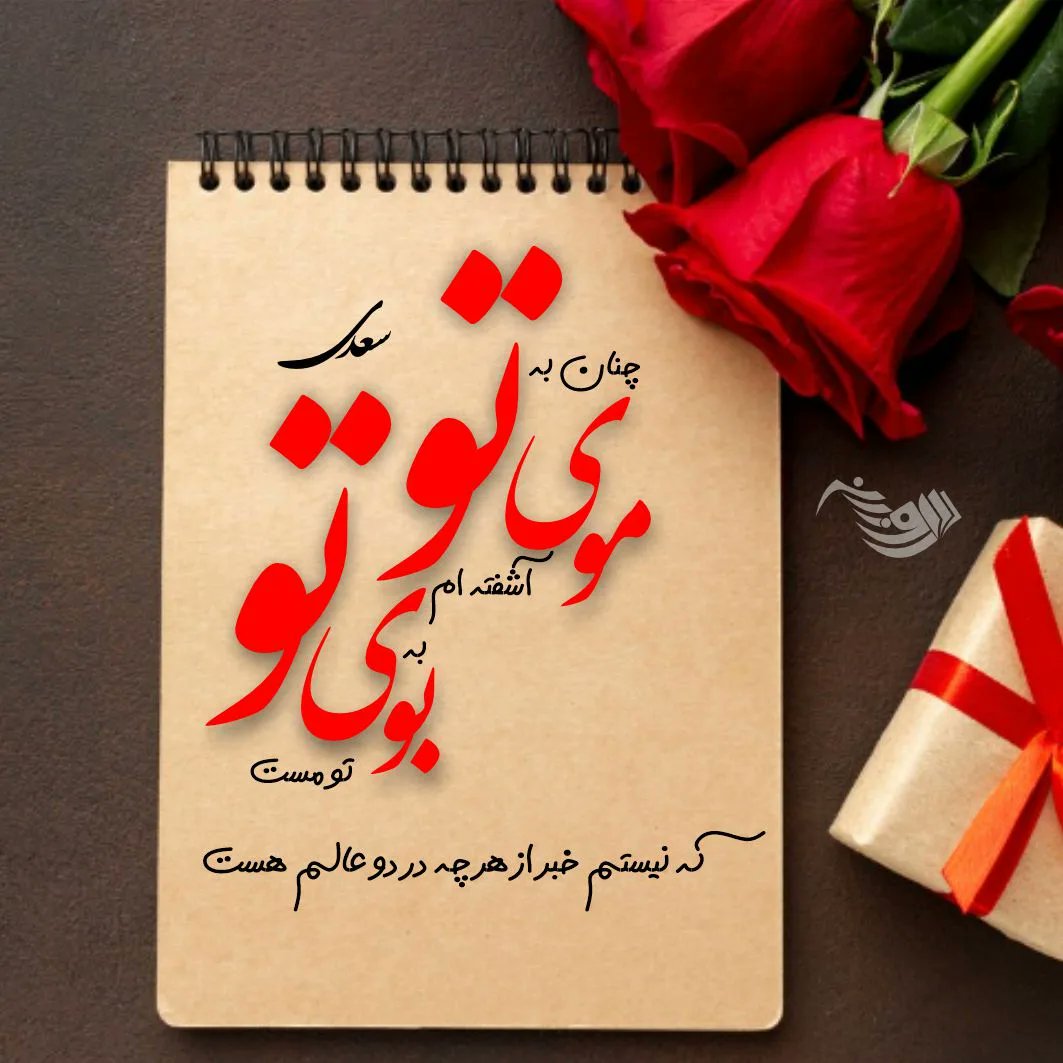 سعدی
چنان به
موی تو
آشفته ام
به
بوی تو
تو مست
که نیستم خبر از هر چه در دو عالم هست